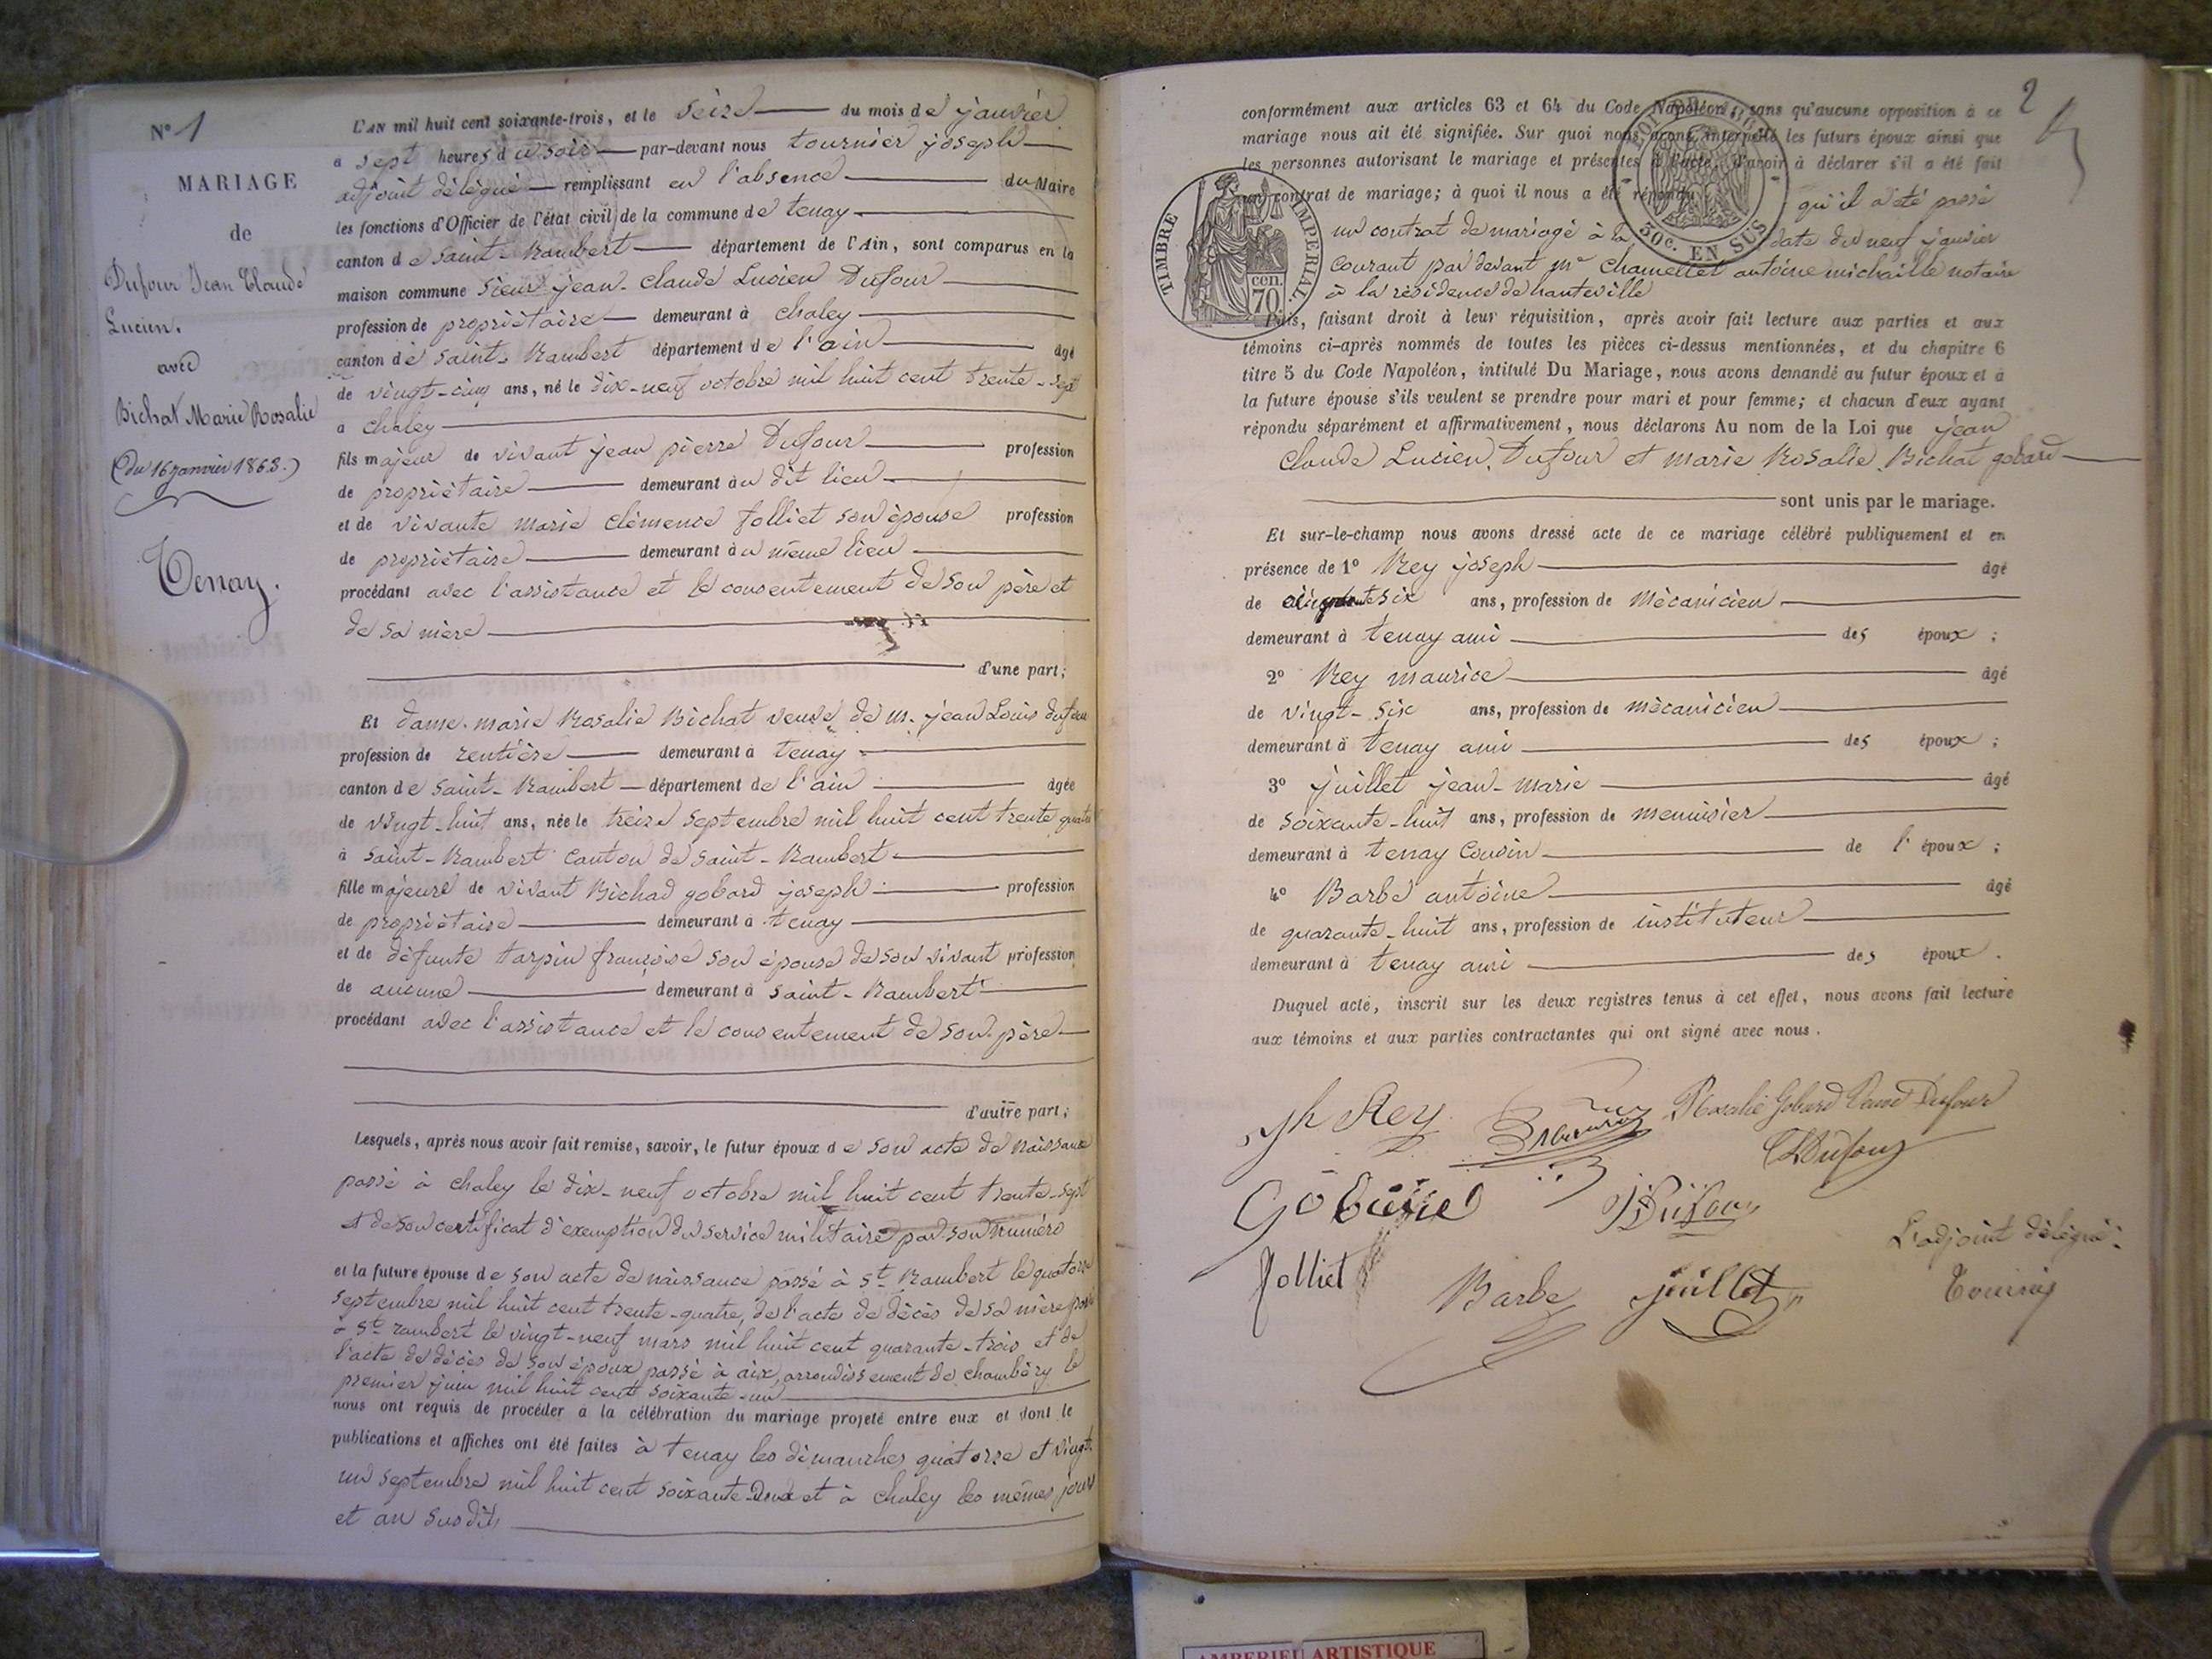 N° 1
MARIAGE
de
Dufour Jean Claude
Lucien.
avec
Bichat Marie Rosalie
(du 16 janvier 1863.)
Tenay.
L'AN mil huit cent soixante-trois, et le seize du mois de janvier
a sept heures du soir par-devant nous tournier joseph
adjoint délégué remplissant en l'absence du Maire
les fonctions d'Officier de l'état civil de la commune de tenay
canton de saint-Rambert département de l'Ain, sont comparus en la
maison commune sieur jean-claude Lucien Dufour
profession de propriétaire demeurant à chaley
canton de saint-Rambert département de l'ain âgé
de vingt-cinq ans, né le dix-neuf octobre mil huit cent trente-sept
a chaley
fils majeur de vivant jean pierre Dufour profession
de propriétaire demeurant au dit lieu
et de vivante marie clémence Jolliet son épouse profession
de propriétaire demeurant au même lieu
procédant avec l'assistance et le consentement de son père et
de sa mère
d'une part;
Et dame marie Rosalie Bichat veuve de m. jean Louis dufour
profession de rentière demeurant à tenay
canton de saint-Rambert département de l'ain âgée
de vingt-huit ans, née le treize septembre mil huit cent trente quatre
à saint-Rambert canton de saint-Rambert
fille majeure de vivant Bichad gobard joseph profession
de propriétaire demeurant à tenay
et de défunte tarpin françoise son épouse de son vivant profession
de aucune demeurant à saint-Rambert
procédant avec l'assistance et le consentement de son père
d'autre part;
Lesquels, après nous avoir fait remise, savoir, le futur époux de son acte de naissance
passé à chaley le dix-neuf octobre mil huit cent trente-sept
et de son certificat d'exemption du service militaire par son numéro
et la future épouse de son acte de naissance passé à St Rambert le quatorze
septembre mil huit cent trente-quatre, de l'acte de décès de sa mère passé
à St rambert le vingt-neuf mars mil huit cent quarante-trois et de
l'acte de décès de son époux passé à aix, arrondissement de chambéry le
premier juin mil huit cent soixante-un
nous ont requis de procéder à la célébration du mariage projeté entre eux et dont le
publications et affiches ont été faites à tenay les dimanches quatorze et vingt
un septembre mil huit cent soixante-deux et à chaley les mêmes jours
et an susdits
2
conformément aux articles 63 et 64 du Code Napoléon, sans qu'aucune opposition à ce
mariage nous ait été signifiée. Sur quoi nous avons interpellé les futurs époux ainsi que
les personnes autorisant le mariage et présentes à l'acte, d'avoir à déclarer s'il a été fait
un contrat de mariage; à quoi il nous a été répondu qu'il a été passé
un contrat de mariage à la date du neuf janvier
courant par devant Me chamellet antoine michaille notaire
à la résidence de hauteville
TIMBRE IMPERIAL
cen.
70
30c. EN SUS
Puis, faisant droit à leur réquisition, après avoir fait lecture aux parties et aux
témoins ci-après nommés de toutes les pièces ci-dessus mentionnées, et du chapitre 6
titre 5 du Code Napoléon, intitulé Du Mariage, nous avons demandé au futur époux et à
la future épouse s'ils veulent se prendre pour mari et pour femme; et chacun d'eux ayant
répondu séparément et affirmativement, nous déclarons Au nom de la Loi que jean
claude Lucien Dufour et marie Rosalie Bichat gobard
sont unis par le mariage.
Et sur-le-champ nous avons dressé acte de ce mariage célébré publiquement et en
présence de 1° Rey joseph âgé
de cinquante six ans, profession de mécanicien
demeurant à tenay ami des époux;
2° Rey maurice âgé
de vingt-six ans, profession de mécanicien
demeurant à tenay ami des époux;
3° juillet jean-marie âgé
de soixante-huit ans, profession de menuisier
demeurant à tenay cousin de l'époux;
4° Barbe antoine âgé
de quarante-huit ans, profession de instituteur
demeurant à tenay ami des époux.
Duquel acte, inscrit sur les deux registres tenus à cet effet, nous avons fait lecture
aux témoins et aux parties contractantes qui ont signé avec nous.
Jh Rey Rosalie Gobard veuve Dufour
CLDufour
JPDufour
L'adjoint délégué
Jolliet
Barbe juillet
AMBERIEU ARTISTIQUE